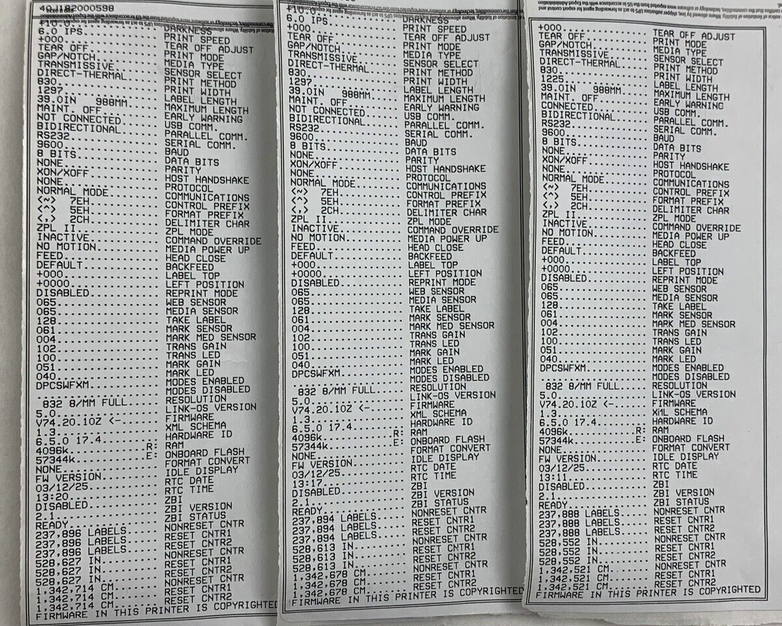 40J182000598
+10.0............ DARKNESS
6.0 IPS.......... PRINT SPEED
+000............. TEAR OFF ADJUST
TEAR OFF......... PRINT MODE
GAP/NOTCH........ MEDIA TYPE
TRANSMISSIVE..... SENSOR SELECT
DIRECT-THERMAL... PRINT METHOD
830.............. PRINT WIDTH
1297............. LABEL LENGTH
39.0IN 988MM..... MAXIMUM LENGTH
MAINT. OFF....... EARLY WARNING
NOT CONNECTED.... USB COMM.
BIDIRECTIONAL.... PARALLEL COMM.
RS232............ SERIAL COMM.
9600............. BAUD
8 BITS........... DATA BITS
NONE............. PARITY
XON/XOFF......... HOST HANDSHAKE
NONE............. PROTOCOL
NORMAL MODE...... COMMUNICATIONS
<~> 7EH.......... CONTROL PREFIX
<^> 5EH.......... FORMAT PREFIX
<,> 2CH.......... DELIMITER CHAR
ZPL II........... ZPL MODE
INACTIVE......... COMMAND OVERRIDE
NO MOTION........ MEDIA POWER UP
FEED............. HEAD CLOSE
DEFAULT.......... BACKFEED
+000............. LABEL TOP
+0000............ LEFT POSITION
DISABLED......... REPRINT MODE
065.............. WEB SENSOR
065.............. MEDIA SENSOR
128.............. TAKE LABEL
061.............. MARK SENSOR
004.............. MARK MED SENSOR
102.............. TRANS GAIN
100.............. TRANS LED
051.............. MARK GAIN
040.............. MARK LED
DPCSWFXM......... MODES ENABLED
................. MODES DISABLED
832 8/MM FULL.... RESOLUTION
5.0.............. LINK-OS VERSION
V74.20.10Z <-.... FIRMWARE
1.3.............. XML SCHEMA
6.5.0 17.4....... HARDWARE ID
4096k.........R: RAM
57344k........E: ONBOARD FLASH
NONE............. FORMAT CONVERT
FW VERSION....... IDLE DISPLAY
03/12/25......... RTC DATE
13:20............ RTC TIME
DISABLED......... ZBI
2.1.............. ZBI VERSION
READY............ ZBI STATUS
237,896 LABELS... NONRESET CNTR
237,896 LABELS... RESET CNTR1
237,896 LABELS... RESET CNTR2
528,627 IN....... NONRESET CNTR
528,627 IN....... RESET CNTR1
528,627 IN....... RESET CNTR2
1,342,714 CM..... NONRESET CNTR
1,342,714 CM..... RESET CNTR1
1,342,714 CM..... RESET CNTR2
FIRMWARE IN THIS PRINTER IS COPYRIGHTED
+10.0............ DARKNESS
6.0 IPS.......... PRINT SPEED
+000............. TEAR OFF ADJUST
TEAR OFF......... PRINT MODE
GAP/NOTCH........ MEDIA TYPE
TRANSMISSIVE..... SENSOR SELECT
DIRECT-THERMAL... PRINT METHOD
830.............. PRINT WIDTH
1297............. LABEL LENGTH
39.0IN 988MM..... MAXIMUM LENGTH
MAINT. OFF....... EARLY WARNING
NOT CONNECTED.... USB COMM.
BIDIRECTIONAL.... PARALLEL COMM.
RS232............ SERIAL COMM.
9600............. BAUD
8 BITS........... DATA BITS
NONE............. PARITY
XON/XOFF......... HOST HANDSHAKE
NONE............. PROTOCOL
NORMAL MODE...... COMMUNICATIONS
<~> 7EH.......... CONTROL PREFIX
<^> 5EH.......... FORMAT PREFIX
<,> 2CH.......... DELIMITER CHAR
ZPL II........... ZPL MODE
INACTIVE......... COMMAND OVERRIDE
NO MOTION........ MEDIA POWER UP
FEED............. HEAD CLOSE
DEFAULT.......... BACKFEED
+000............. LABEL TOP
+0000............ LEFT POSITION
DISABLED......... REPRINT MODE
065.............. WEB SENSOR
065.............. MEDIA SENSOR
128.............. TAKE LABEL
061.............. MARK SENSOR
004.............. MARK MED SENSOR
102.............. TRANS GAIN
100.............. TRANS LED
051.............. MARK GAIN
040.............. MARK LED
DPCSWFXM......... MODES ENABLED
................. MODES DISABLED
832 8/MM FULL.... RESOLUTION
5.0.............. LINK-OS VERSION
V74.20.10Z <-.... FIRMWARE
1.3.............. XML SCHEMA
6.5.0 17.4....... HARDWARE ID
4096k.........R: RAM
57344k........E: ONBOARD FLASH
NONE............. FORMAT CONVERT
FW VERSION....... IDLE DISPLAY
03/12/25......... RTC DATE
13:17............ RTC TIME
DISABLED......... ZBI
2.1.............. ZBI VERSION
READY............ ZBI STATUS
237,894 LABELS... NONRESET CNTR
237,894 LABELS... RESET CNTR1
237,894 LABELS... RESET CNTR2
528,613 IN....... NONRESET CNTR
528,613 IN....... RESET CNTR1
528,613 IN....... RESET CNTR2
1,342,678 CM..... NONRESET CNTR
1,342,678 CM..... RESET CNTR1
1,342,678 CM..... RESET CNTR2
FIRMWARE IN THIS PRINTER IS COPYRIGHTED
+000............. TEAR OFF ADJUST
TEAR OFF......... PRINT MODE
GAP/NOTCH........ MEDIA TYPE
TRANSMISSIVE..... SENSOR SELECT
DIRECT-THERMAL... PRINT METHOD
830.............. PRINT WIDTH
1225............. LABEL LENGTH
39.0IN 988MM..... MAXIMUM LENGTH
MAINT. OFF....... EARLY WARNING
CONNECTED........ USB COMM.
BIDIRECTIONAL.... PARALLEL COMM.
RS232............ SERIAL COMM.
9600............. BAUD
8 BITS........... DATA BITS
NONE............. PARITY
XON/XOFF......... HOST HANDSHAKE
NONE............. PROTOCOL
NORMAL MODE...... COMMUNICATIONS
<~> 7EH.......... CONTROL PREFIX
<^> 5EH.......... FORMAT PREFIX
<,> 2CH.......... DELIMITER CHAR
ZPL II........... ZPL MODE
INACTIVE......... COMMAND OVERRIDE
NO MOTION........ MEDIA POWER UP
FEED............. HEAD CLOSE
DEFAULT.......... BACKFEED
+000............. LABEL TOP
+0000............ LEFT POSITION
DISABLED......... REPRINT MODE
065.............. WEB SENSOR
065.............. MEDIA SENSOR
128.............. TAKE LABEL
061.............. MARK SENSOR
004.............. MARK MED SENSOR
102.............. TRANS GAIN
100.............. TRANS LED
051.............. MARK GAIN
040.............. MARK LED
DPCSWFXM......... MODES ENABLED
................. MODES DISABLED
832 8/MM FULL.... RESOLUTION
5.0.............. LINK-OS VERSION
V74.20.10Z <-.... FIRMWARE
1.3.............. XML SCHEMA
6.5.0 17.4....... HARDWARE ID
4096k.........R: RAM
57344k........E: ONBOARD FLASH
NONE............. FORMAT CONVERT
FW VERSION....... IDLE DISPLAY
03/12/25......... RTC DATE
13:11............ RTC TIME
DISABLED......... ZBI
2.1.............. ZBI VERSION
READY............ ZBI STATUS
237,888 LABELS... NONRESET CNTR
237,888 LABELS... RESET CNTR1
237,888 LABELS... RESET CNTR2
528,552 IN....... NONRESET CNTR
528,552 IN....... RESET CNTR1
528,552 IN....... RESET CNTR2
1,342,521 CM..... NONRESET CNTR
1,342,521 CM..... RESET CNTR1
1,342,521 CM..... RESET CNTR2
FIRMWARE IN THIS PRINTER IS COPYRIGHTED